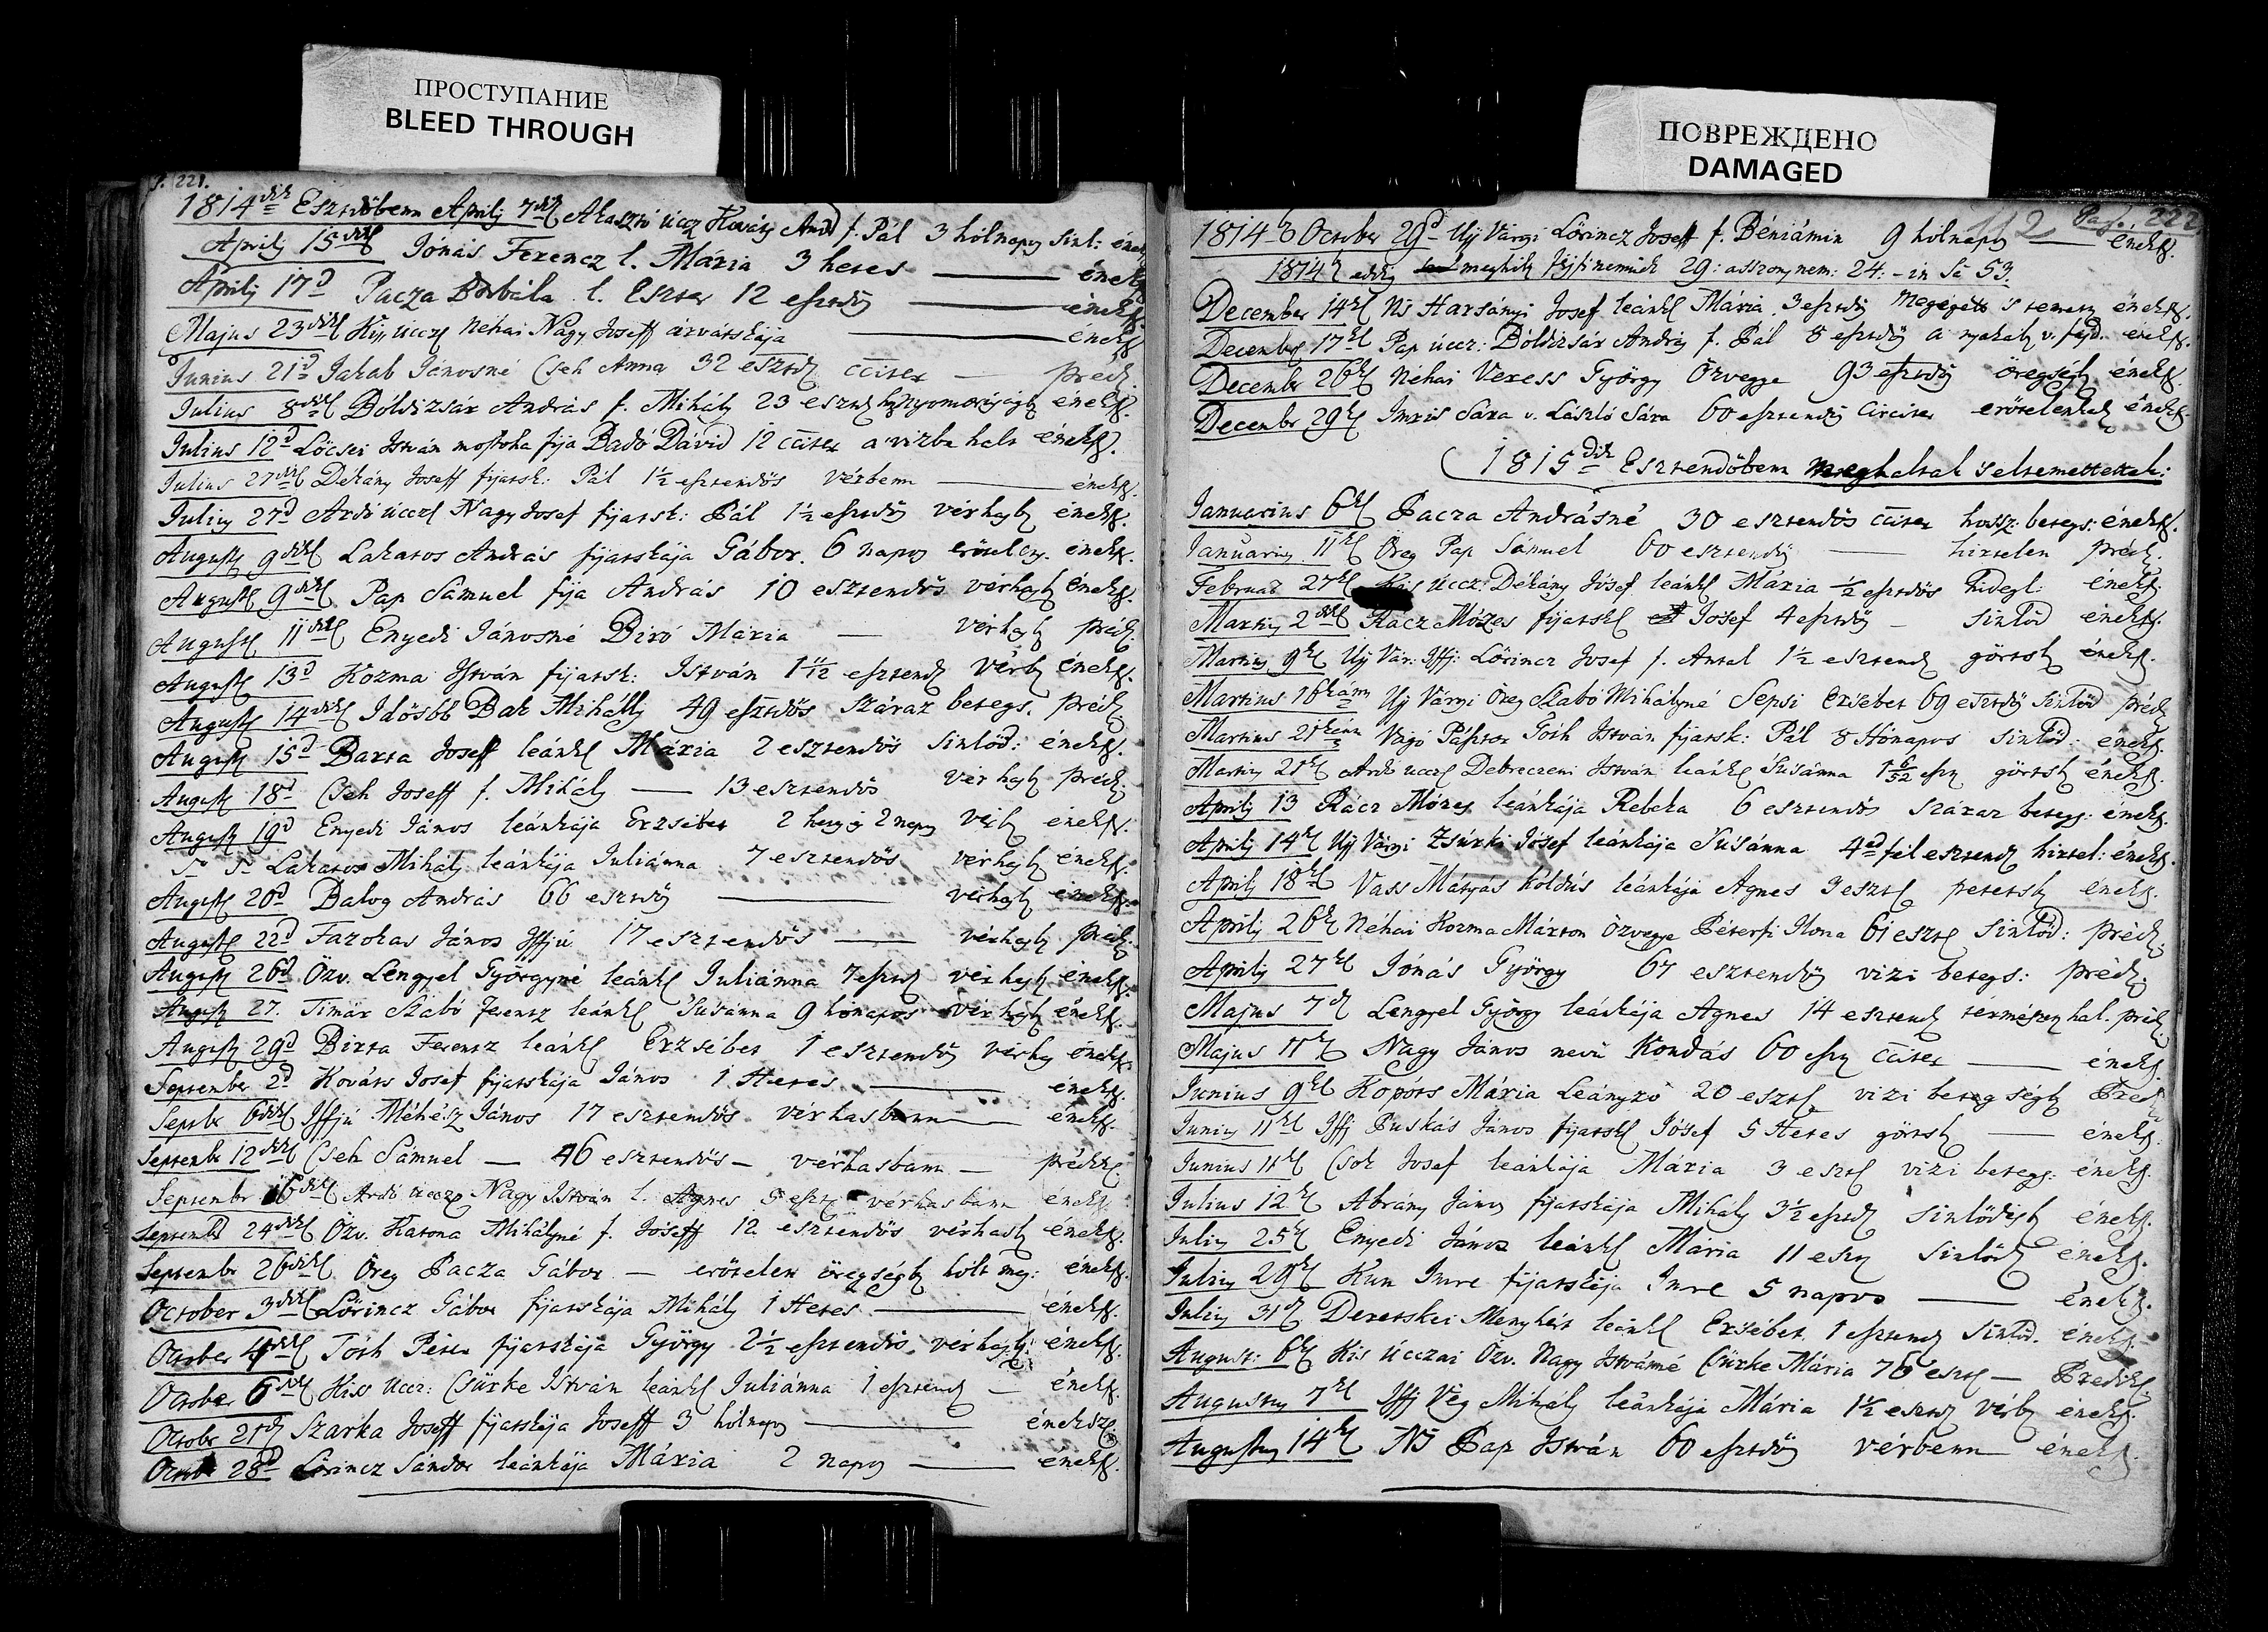 ПРОСТУПАНИЕ
BLEED THROUGH
ПОВРЕЖДЕНО
DAMAGED
P. 221.
1814dik Esztdőbenn Aprilj 7dik Akasztó úcz Kováts Andr f. Pál 3 hólnapos sinl: énekß.
Aprilj 15dik Jónás Ferencz l. Mária 3 hetes — énekß.
Aprilj 17d Pacza Borbála l. Eszter 12 eßtdős — énekß.
Majus 23dik Kis úcz Néhai Nagy Joseff árvátskája — énekß
Junius 21d Jakab Jánosné Cseh Anna 32 esztd cciter — préd.
Julius 8dik Bóldizsár András f. Mihály 23 eszt énekß.
Julius 12d Lőcsei István mostoha fija Badó Dávid 12 cciter a' vizbe halt énekß.
Julius 27dik Dékány Joseff fijatsk: Pál 1½ eßtendős vérbenn — énekß.
Julius 27d Ardó úcz Nagy Josef fijatsk: Pál 1½ eßtdős vérhasb énekß.
August 9dik Lakatos András fijatskája Gábor. 6 napos erőtelen. énekß.
August 9dik Pap Sámuel fija András 10 esztendős vérhasb énekß.
August 11dik Enyedi Jánosné Biró Mária — vérhasb préd.
August 13d Kozma István fijatsk: István 1 11/12 eßtend vérb énekß.
August 14dik Idősbb Bak Mihálly 49 eßtdős száraz betegs. préd
August 15d Barta Joseff leánk Mária 2 esztendős sinlőd: énekß.
August 18d Cseh Joseff f. Mihály — 13 esztendős vérhasb préd.
August 19d Enyedi János leánkája Erzsébet 2 hetes 2 napos vérb énekß.
Lakatos Mihály leánkája Juliánna 7 esztendős vérhasb énekß.
August 20d Balog András 66 esztdős — vérhasb énekß.
August 22d Fazekas János Iffjú 17 esztendős — vérhasb préd.
August 26d Özv. Lengyel Györgyné leánk Juliánna 7 eßtd vérhasb énekß.
August 27. Timár Szabó Ferentz leánk 'Su'sánna 9 hónapos vérhasb énekß.
August 29d Birta Ferentz leánk Erzsébet 1 esztendős vérha énekß.
September 2d Kováts Josef fijatskája János 1 Hetes — énekß.
Septbr 6dik Iffjú Méhész János 17 esztendős vérhasbann — énekß.
Septembr 12dik Cseh Sámuel — 46 esztendős — vérhasbann — prédk
Septembr 16dik Ardó úcza Nagy István l. Ágnes 5 eßt vérhasbann énekß.
Septembr 24dik Özv. Katona Mihályné f. Jóseff 12 esztendős vérhasb énekß.
Septembr 26dik Öreg Pacza Gábor — erőtelen öregségb hólt meg: énekß.
October 3dik Lőrincz Gábor fijatskája Mihály 1 Hetes — énekß.
October 4dik Tóth Péter fijatskája György 2½ eßtendős vérhasb: énekß.
October 6dik Kiss úcz: Csürke István leánk Juliánna 1 eßtend — énekß.
October 21d Szarka Joseff fijatskája Joseff 3 hólnapos — éneksz
Octobr 28d Lőrincz Sándor leánkája Mária 2 napos — énekß.
112 Pag. 222
1814b October 29d Új Várgi Lőrincz Joseff f. Béniámin 9 hólnapos — énekß.
1814b eddig meghólt férjfi nemüek 29: asszony nem: 24: - in Sa 53.
December 14k Ns Harsányi Josef leánk Mária 3 eßtdős megégett 's temett énekß.
December 17k Pap úcz: Bóldizsár András f. Pál 8 eßtdős a nyakab v. fájd. énekß.
December 26k Néhai Veress György Özvegye 93 eßtdős öregségb énekß.
Decembr 29k Imris Sára v. László Sára 60 eßtendős circiter erőtelenb énekß.
1815dik Esztendőbenn meghaltak 's eltemettettek:
Januarius 6k Pacza Andrásné 30 esztendős cciter hossz: betegs: énekß.
Januarius 11k Öreg Pap Sámuel 60 esztendős — hirtelen préd.
Februar 27k Kis úcz: Dékány Jósef leánk Mária ½ eßtdős hidegl: énekß.
Martius 2dik Rácz Mózes fijatsk Jósef 4 eßtdős — sinlőd énekß.
Martius 9k Új Vár: Iffj: Lőrincz Josef f. Antal 1½ esztend görtsb énekß.
Martius 16kánn Új Várgi Öreg Szabó Mihályné Sepsi Er'sébet 69 esztdős sinlőd préd
Martius 21kénn Vágó Pásztor Tóth István fijatsk: Pál 8 Hónapos sinlőd: énekß.
Martius 21k Ardó úcz Debreczeni István leánk 'Su'sánna 1 6/52 esz görtsb énekß.
Aprilj 13 Rácz Mózes leánkája Rebeka 6 esztendős száraz betegs: énekß.
Aprilj 14k Új Várgi Zsúrki Jósef leánkája 'Su'sánna 4ed fél esztend hirtel: énekß.
Aprilj 18k Vass Mátyás kóldús leánkája Ágnes 3 eszt petetsb énekß.
Aprilj 26k Néhai Kozma Márton özvegye Péterfi Ilona 61 eszt sinlőd: préd.
Aprilj 27k Jónás György 67 esztendős vizi betegs: préd.
Majus 7d Lengyel György leánkája Ágnes 14 esztend természeg hal. préd
Majus 11k Nagy János nevű Kondás 60 esz cciter — énekß.
Junius 9k Kopóts Mária Leányzó 20 eszt vizi betegségb Préd
Junius 11k Iffj Puskás János fijatsk Jósef 5 Hetes görtsb — énekß.
Junius 11k Csok Josef leánkája Mária 3 eszt vizi betegs: énekß.
Julius 12k Ábrány János fijatskája Mihály 3½ eßtd sinlődésb énekß.
Julius 25k Enyedi János leánk Mária 11 esz sinlőd énekß.
Julius 29k Kun Imre fijatskája Imre 5 napos — énekß.
Julius 31d Deretskei Menyhért leánk Er'sébet 1 eßtend sinlőd. énekß.
August: 6k Kis Úczai Özv. Nagy Istvánné Csürke Mária 76 eszt — Prédik.
Augustus 7k Iffj Vég Mihály leánkája Mária 1½ eszt vérb énekß.
Augustus 14k Ns Pap István 60 eßtdős vérbenn énekß.